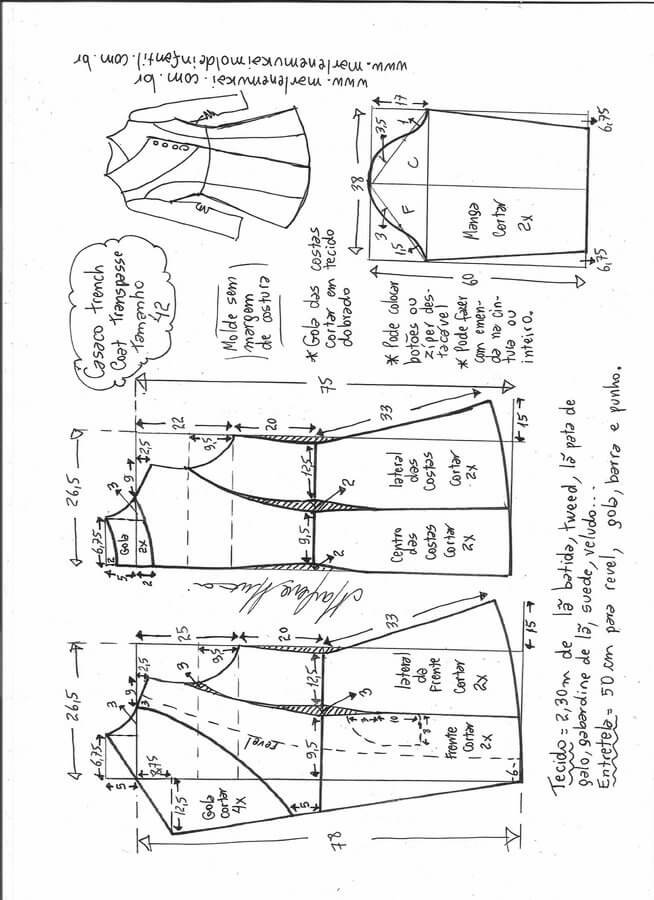 www.marlenemukai.com.br
www.marlenemukaimoldeinfantil.com.br
Casaco trench
Coat Transpasse
Tamanho
42
Molde sem
margem
de costura
* Gola das costas
cortar em tecido
dobrado
* Pode colocar
botões ou
zíper des-
tacável
* Pode fazer
com emen-
da na cin-
tula ou
inteiro.
38
17
3,5
1
C
F
3
1,5
Manga
Cortar
2x
60
6,75
6,75
26,5
75
22
20
33
15
2,5
9
3
9,5
12,5
6,75
2
Gola
2x
5
2
9,5
2
2
lateral
das
Costas
Cortar
2x
Centro
das
Costas
Cortar
2x
Marlene Mukai
26,5
78
25
20
33
15
2,5
9
3
3
3
9,5
12,5
6,75
5
8,75
12,5
revel
9,5
3
10
8
5
6
Gola
cortar
4x
lateral
da
Frente
Cortar
2x
Frente
Cortar
2x
Tecido = 2,30m de lã batida, tweed, lã pata de
galo, gabardine de lã, suede, veludo...
Entretela = 50 cm para revel, gola, barra e punho.